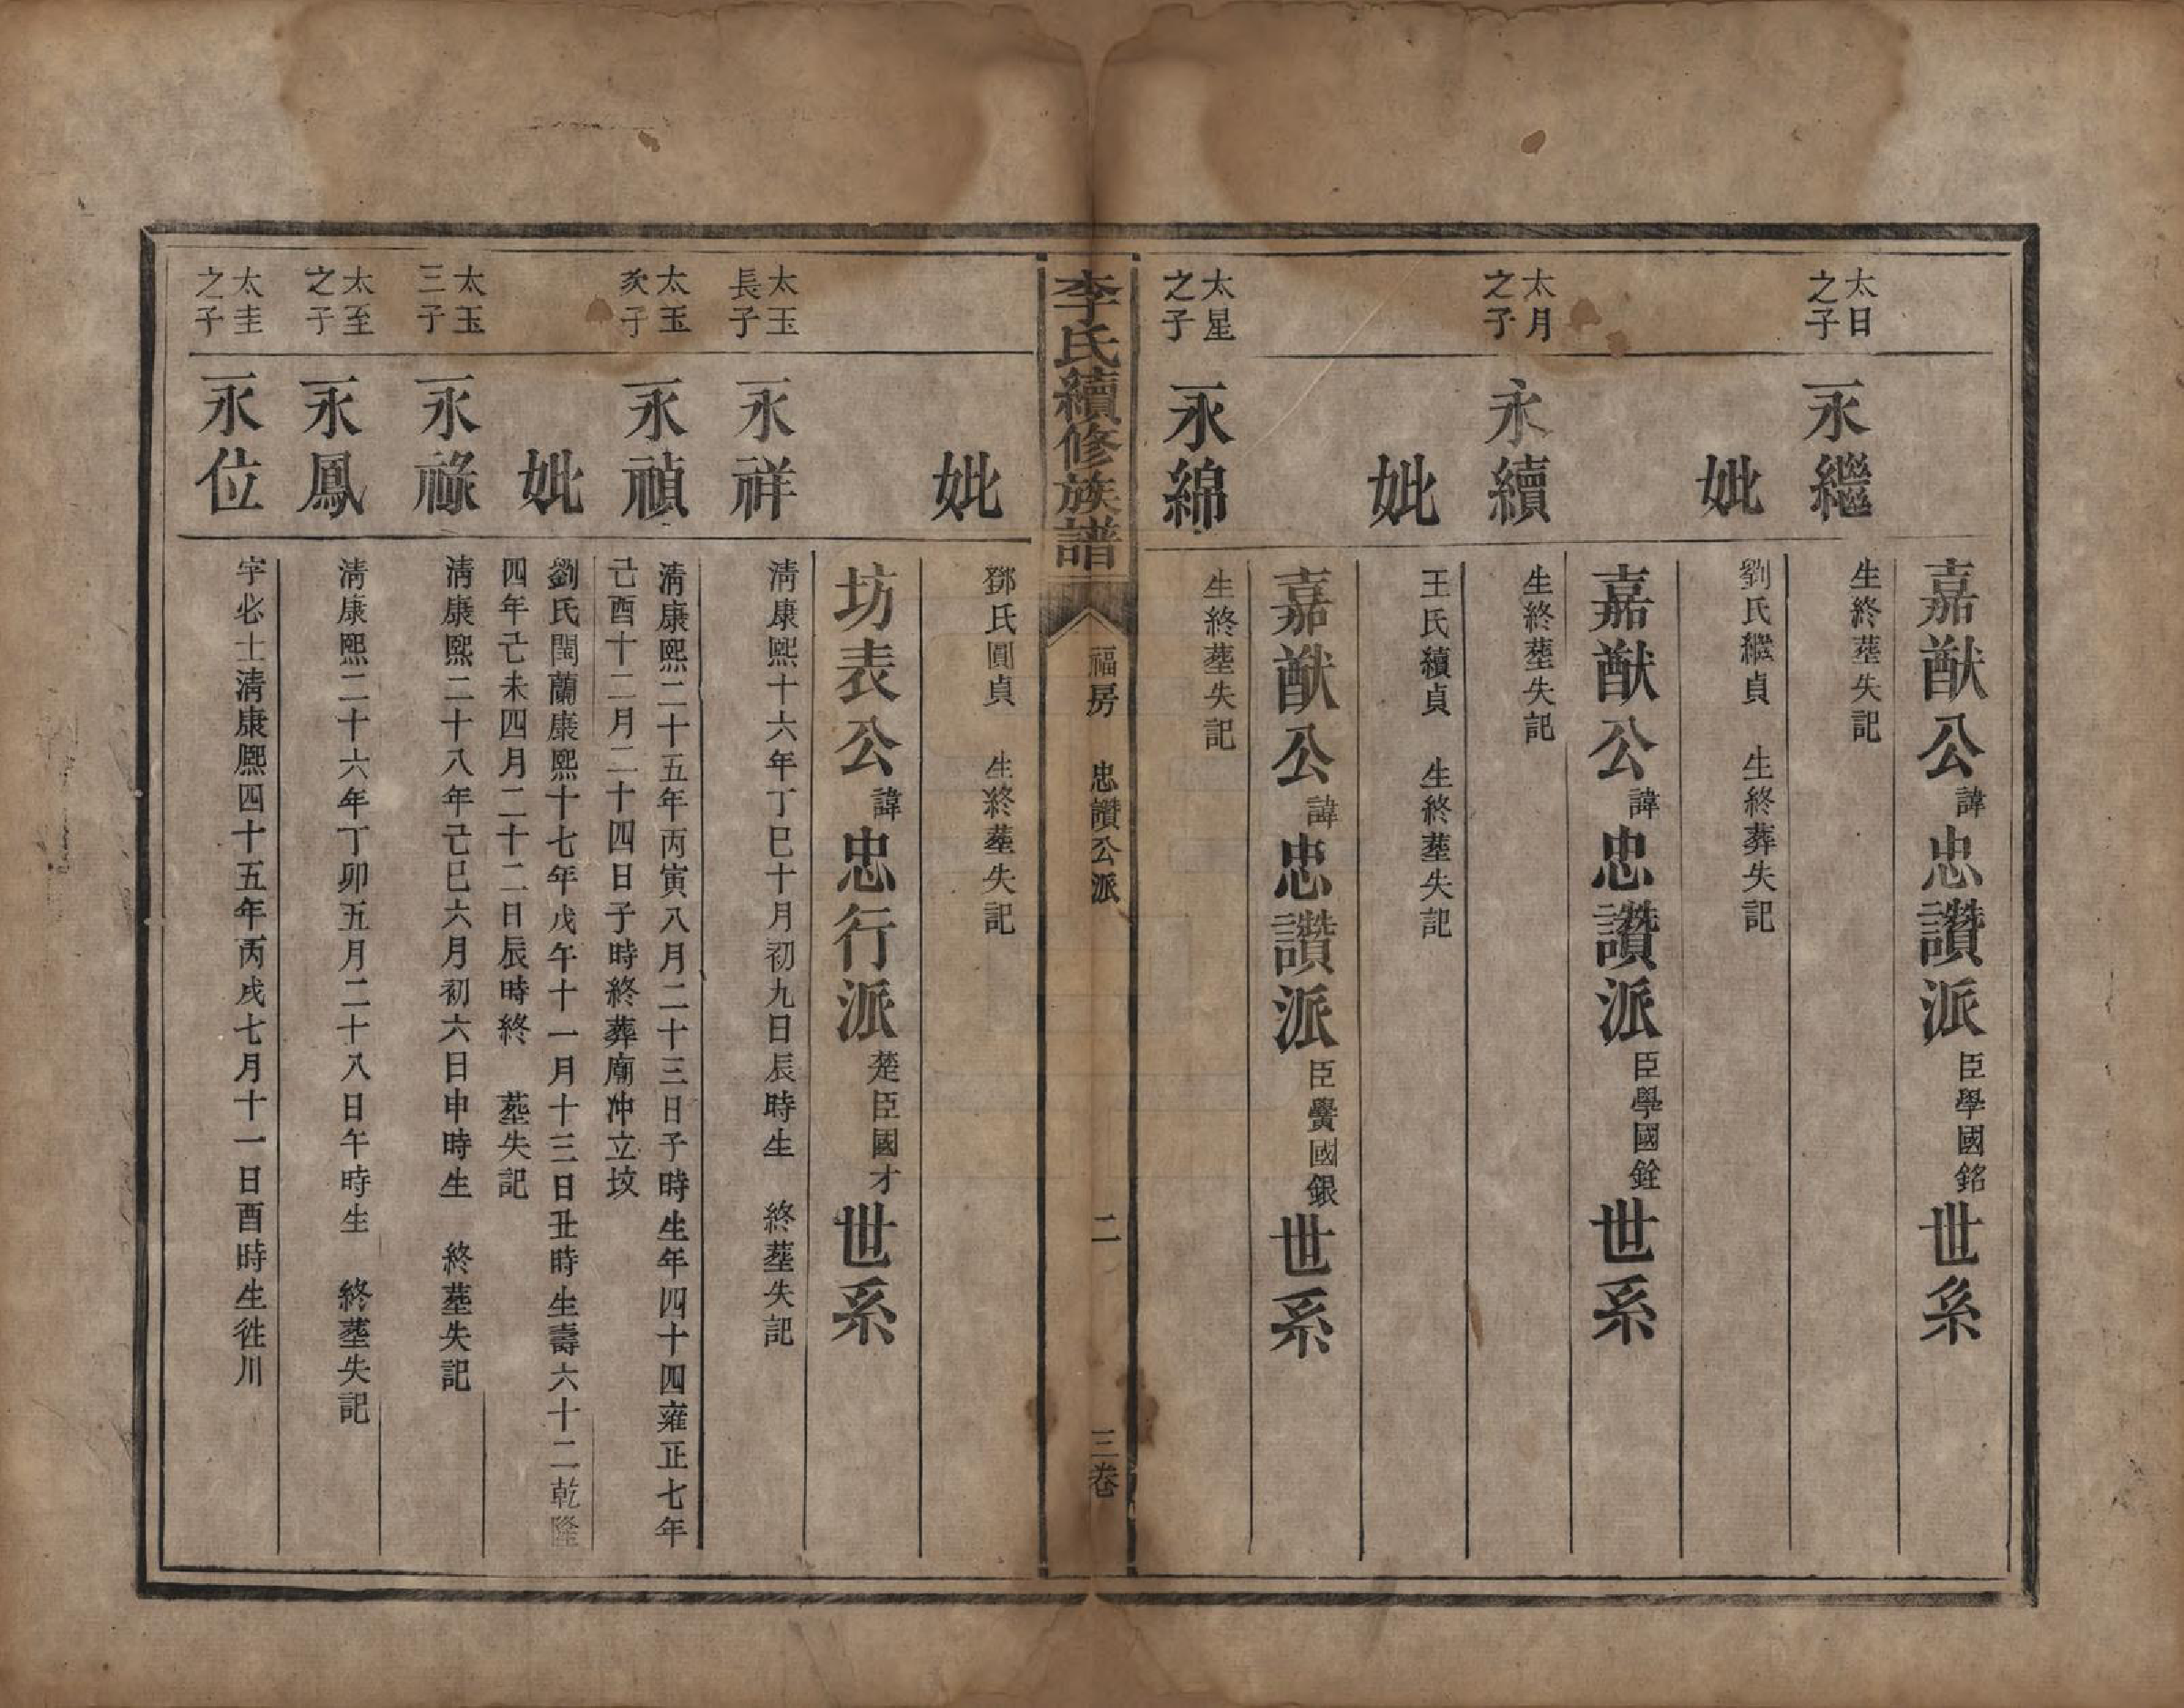 嘉猷公諱忠讚派臣學國銘世系
太日之子
永繼
生終塟失記
妣
劉氏繼貞 生終葬失記
嘉猷公諱忠讚派臣學國銓世系
太月之子
永續
生終塟失記
妣
王氏續貞 生終塟失記
嘉猷公諱忠讚派臣黌國銀世系
太星之子
永綿
生終塟失記
李氏續修族譜
福房 忠讚公派
二
三卷
妣
鄧氏圓貞 生終塟失記
坊表公諱忠行派楚臣國才世系
太玉長子
永祥
清康熙十六年丁巳十月初九日辰時生 終塟失記
太玉次子
永禎
清康熙二十五年丙寅八月二十三日子時生年四十四雍正七年
己酉十二月二十四日子時終葬廟冲立坟
妣
劉氏閨蘭康熙十七年戊午十一月十三日丑時生壽六十二乾隆
四年己未四月二十二日辰時終 塟失記
太玉三子
永祿
清康熙二十八年己巳六月初六日申時生 終塟失記
太至之子
永鳳
清康熙二十六年丁卯五月二十八日午時生 終塟失記
太圭之子
永位
字必士清康熙四十五年丙戌七月十一日酉時生徃川